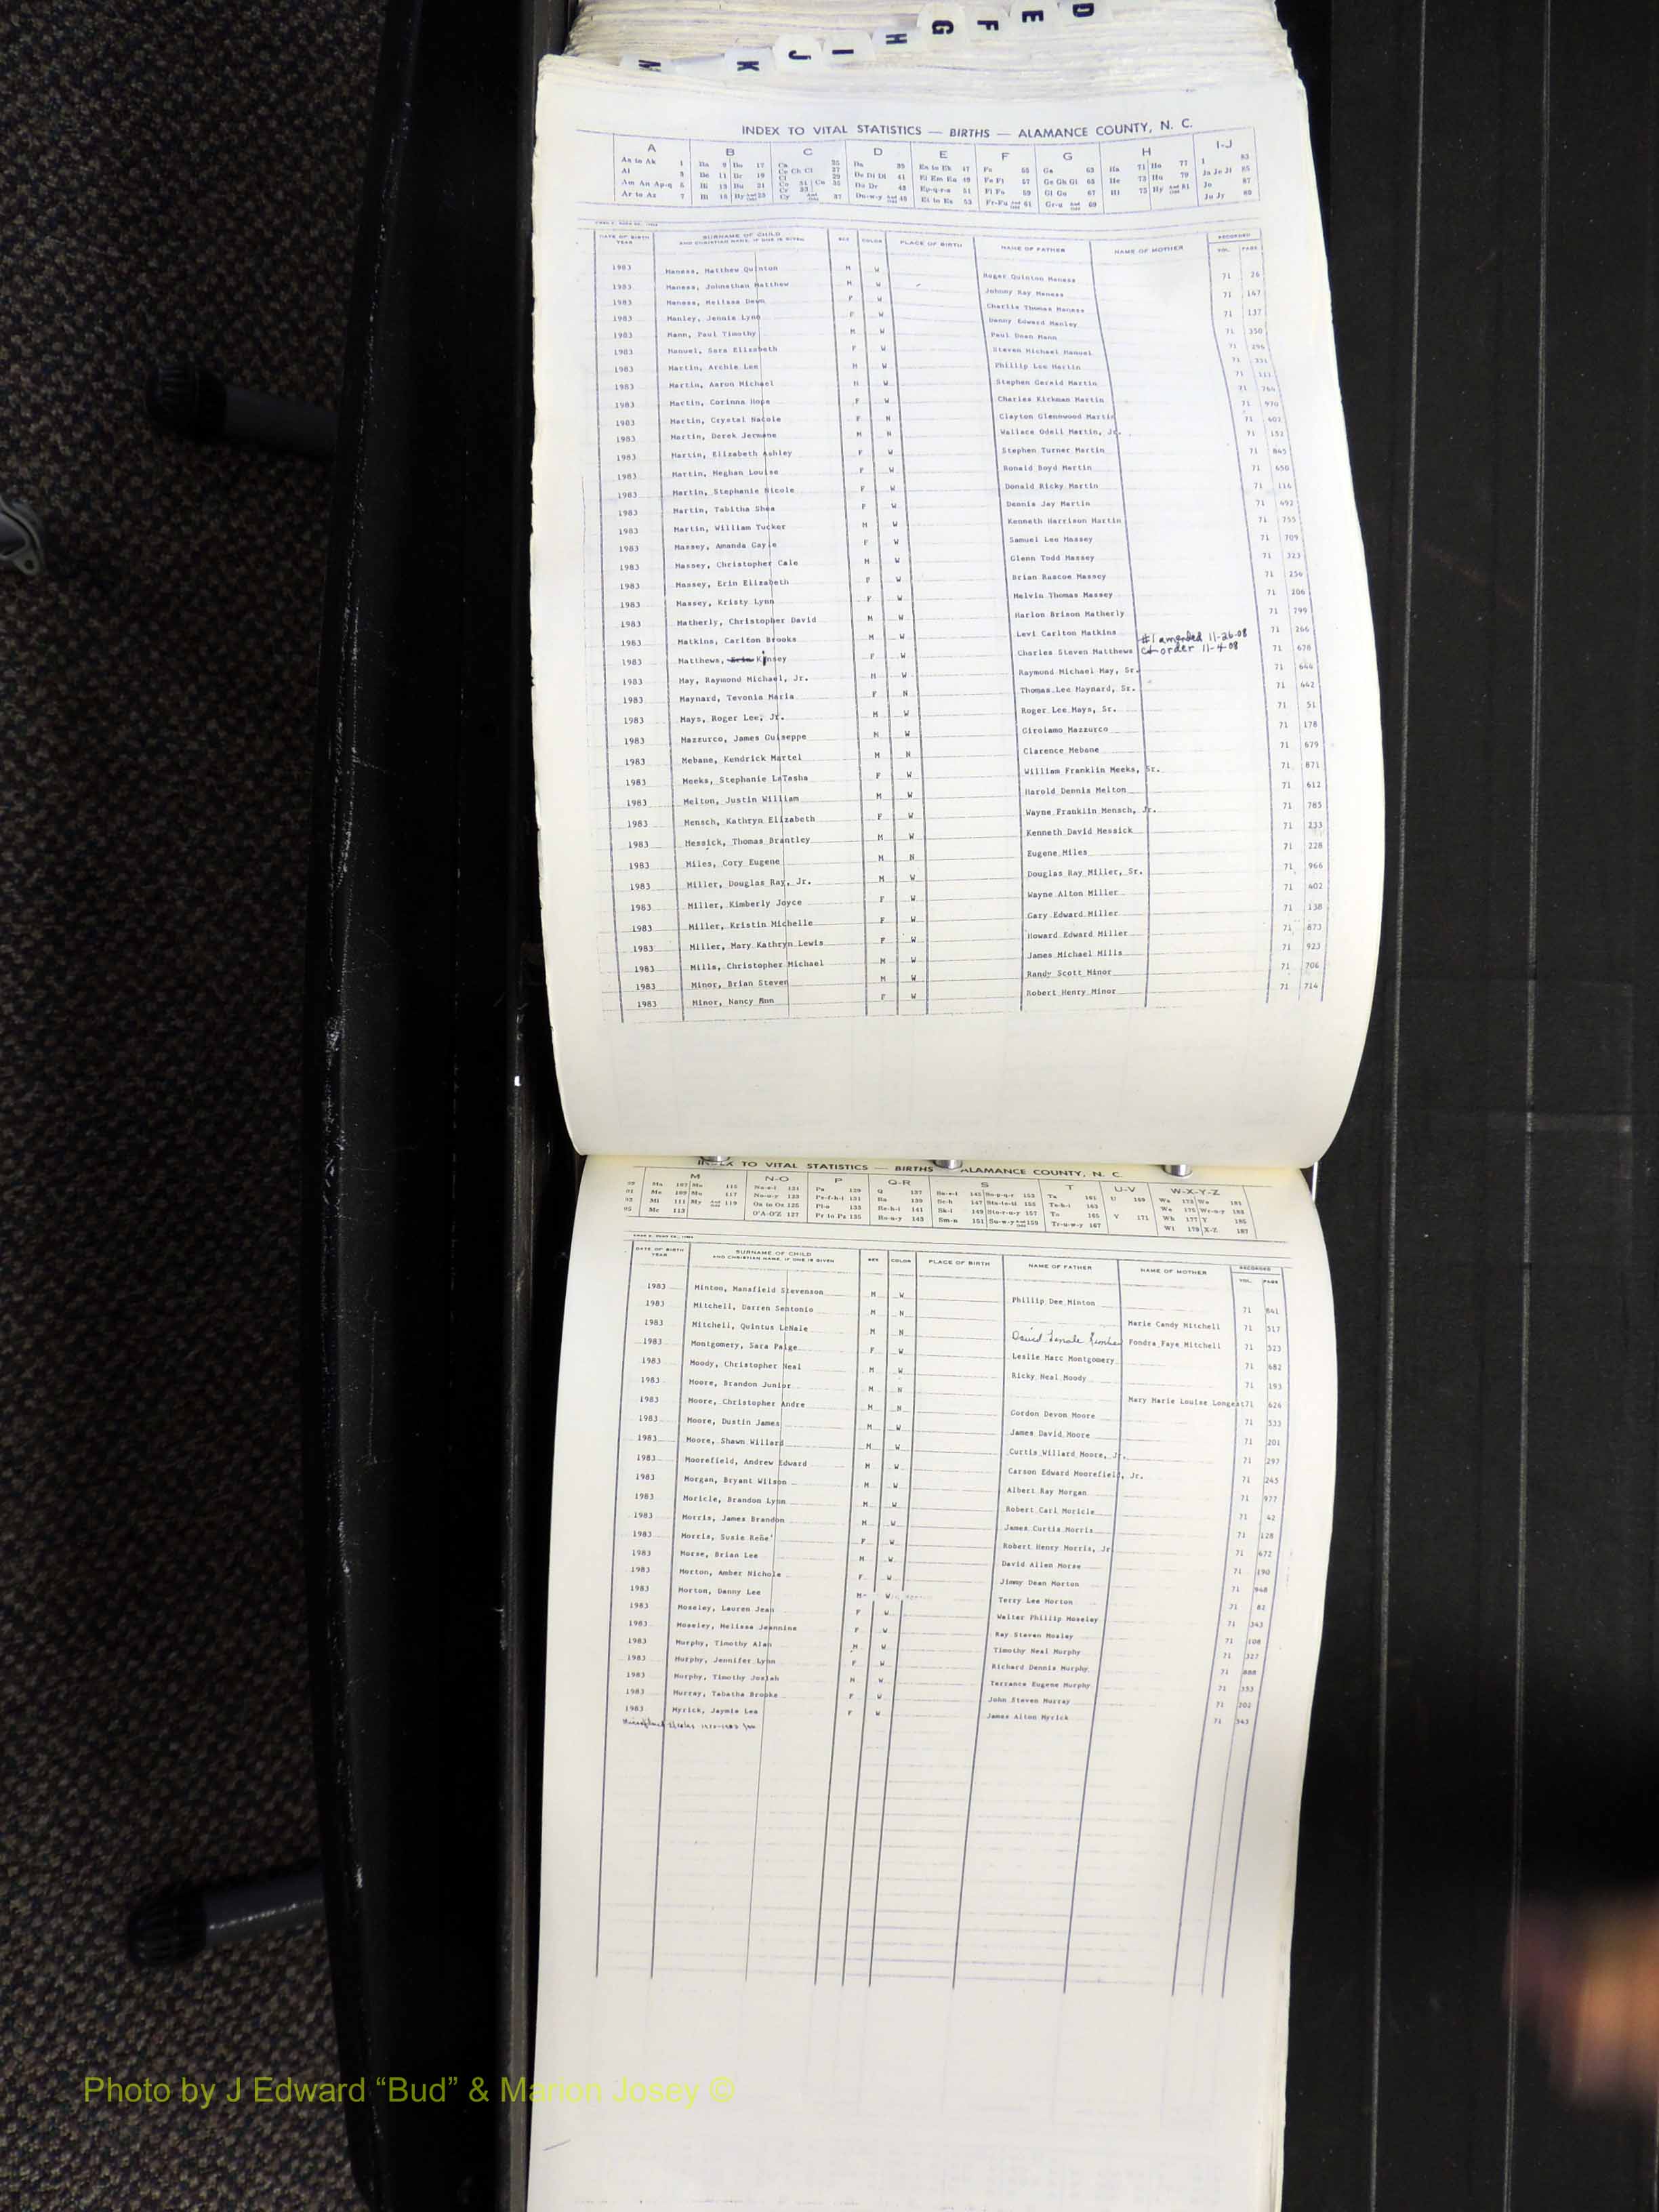 D
E
F
G
H
I
J
K
M
INDEX TO VITAL STATISTICS — BIRTHS — ALAMANCE COUNTY, N. C.
A B C D E F G H I-J
DATE OF BIRTH YEAR SURNAME OF CHILD AND CHRISTIAN NAME, IF ONE IS GIVEN SEX COLOR PLACE OF BIRTH NAME OF FATHER NAME OF MOTHER RECORDED VOL. PAGE
1983 Maness, Matthew Quinton M W Roger Quinton Maness 71 26
1983 Maness, Johnathan Matthew M W Johnny Ray Maness 71 147
1983 Maness, Melissa Dawn F W Charlie Thomas Maness 71 137
1983 Manley, Jennie Lynn F W Danny Edward Manley 71 350
1983 Mann, Paul Timothy M W Paul Dean Mann 71 296
1983 Manuel, Sara Elizabeth F W Steven Michael Manuel 71 331
1983 Martin, Archie Lee M W Phillip Lee Martin 71 111
1983 Martin, Aaron Michael M W Stephen Gerald Martin 71 766
1983 Martin, Corinna Hope F W Charles Kirkman Martin 71 970
1983 Martin, Crystal Nacole F N Clayton Glennwood Martin 71 602
1983 Martin, Derek Jermane M N Wallace Odell Martin, Jr. 71 151
1983 Martin, Elizabeth Ashley F W Stephen Turner Martin 71 845
1983 Martin, Meghan Louise F W Ronald Boyd Martin 71 650
1983 Martin, Stephanie Nicole F W Donald Ricky Martin 71 116
1983 Martin, Tabitha Shea F W Dennis Jay Martin 71 492
1983 Martin, William Tucker M W Kenneth Harrison Martin 71 755
1983 Massey, Amanda Gayle F W Samuel Lee Massey 71 709
1983 Massey, Christopher Cale M W Glenn Todd Massey 71 323
1983 Massey, Erin Elizabeth F W Brian Rascoe Massey 71 256
1983 Massey, Kristy Lynn F W Melvin Thomas Massey 71 206
1983 Matherly, Christopher David M W Harlon Brison Matherly 71 799
1983 Matkins, Carlton Brooks M W Levi Carlton Matkins 71 266
#1 amended 11-26-08
1983 Matthews, Erin Kinsey F W Charles Steven Matthews ct order 11-4-08 71 678
1983 May, Raymond Michael, Jr. M W Raymond Michael May, Sr. 71 646
1983 Maynard, Tevonia Maria F N Thomas Lee Maynard, Sr. 71 442
1983 Mays, Roger Lee, Jr. M W Roger Lee Mays, Sr. 71 51
1983 Mazzurco, James Guiseppe M W Girolamo Mazzurco 71 178
1983 Mebane, Kendrick Martel M N Clarence Mebane 71 679
1983 Meeks, Stephanie LaTasha F W William Franklin Meeks, Sr. 71 871
1983 Melton, Justin William M W Harold Dennis Melton 71 612
1983 Mensch, Kathryn Elizabeth F W Wayne Franklin Mensch, Jr. 71 785
1983 Messick, Thomas Brantley M W Kenneth David Messick 71 233
1983 Miles, Cory Eugene M N Eugene Miles 71 228
1983 Miller, Douglas Ray, Jr. M W Douglas Ray Miller, Sr. 71 966
1983 Miller, Kimberly Joyce F W Wayne Alton Miller 71 402
1983 Miller, Kristin Michelle F W Gary Edward Miller 71 138
1983 Miller, Mary Kathryn Lewis F W Howard Edward Miller 71 873
1983 Mills, Christopher Michael M W James Michael Mills 71 923
1983 Minor, Brian Steven M W Randy Scott Minor 71 706
1983 Minor, Nancy Ann F W Robert Henry Minor 71 714
INDEX TO VITAL STATISTICS — BIRTHS ALAMANCE COUNTY, N. C.
M N-O P Q-R S T U-V W-X-Y-Z
DATE OF BIRTH YEAR SURNAME OF CHILD AND CHRISTIAN NAME, IF ONE IS GIVEN SEX COLOR PLACE OF BIRTH NAME OF FATHER NAME OF MOTHER RECORDED VOL. PAGE
1983 Minton, Mansfield Stevenson M W Phillip Dee Minton 71 841
1983 Mitchell, Darren Sentonio M N Marie Candy Mitchell 71 517
1983 Mitchell, Quintus LeNale M N David Fondra Faye Mitchell 71 523
1983 Montgomery, Sara Paige F W Leslie Marc Montgomery 71 682
1983 Moody, Christopher Neal M W Ricky Neal Moody 71 193
1983 Moore, Brandon Junior M N Mary Marie Louise Longest 71 626
1983 Moore, Christopher Andre M N Gordon Devon Moore 71 533
1983 Moore, Dustin James M W James David Moore 71 201
1983 Moore, Shawn Willard M W Curtis Willard Moore, Jr. 71 297
1983 Moorefield, Andrew Edward M W Carson Edward Moorefield, Jr. 71 245
1983 Morgan, Bryant Wilson M W Albert Ray Morgan 71 977
1983 Moricle, Brandon Lynn M W Robert Carl Moricle 71 42
1983 Morris, James Brandon M W James Curtis Morris 71 128
1983 Morris, Susie Rene' F W Robert Henry Morris, Jr 71 672
1983 Morse, Brian Lee M W David Allen Morse 71 190
1983 Morton, Amber Nichole F W Jimmy Dean Morton 71 948
1983 Morton, Danny Lee M W Terry Lee Morton 71 82
1983 Moseley, Lauren Jean F W Walter Phillip Moseley 71 343
1983 Moseley, Melissa Jeannine F W Ray Steven Mosley 71 108
1983 Murphy, Timothy Alan M W Timothy Neal Murphy 71 327
1983 Murphy, Jennifer Lynn F W Richard Dennis Murphy 71 888
1983 Murphy, Timothy Josiah M W Terrance Eugene Murphy 71 353
1983 Murray, Tabatha Brooke F W John Steven Murray 71 202
1983 Myrick, Jaymie Lea F W James Alton Myrick 71 543
Photo by J Edward “Bud” & Marion Josey ©